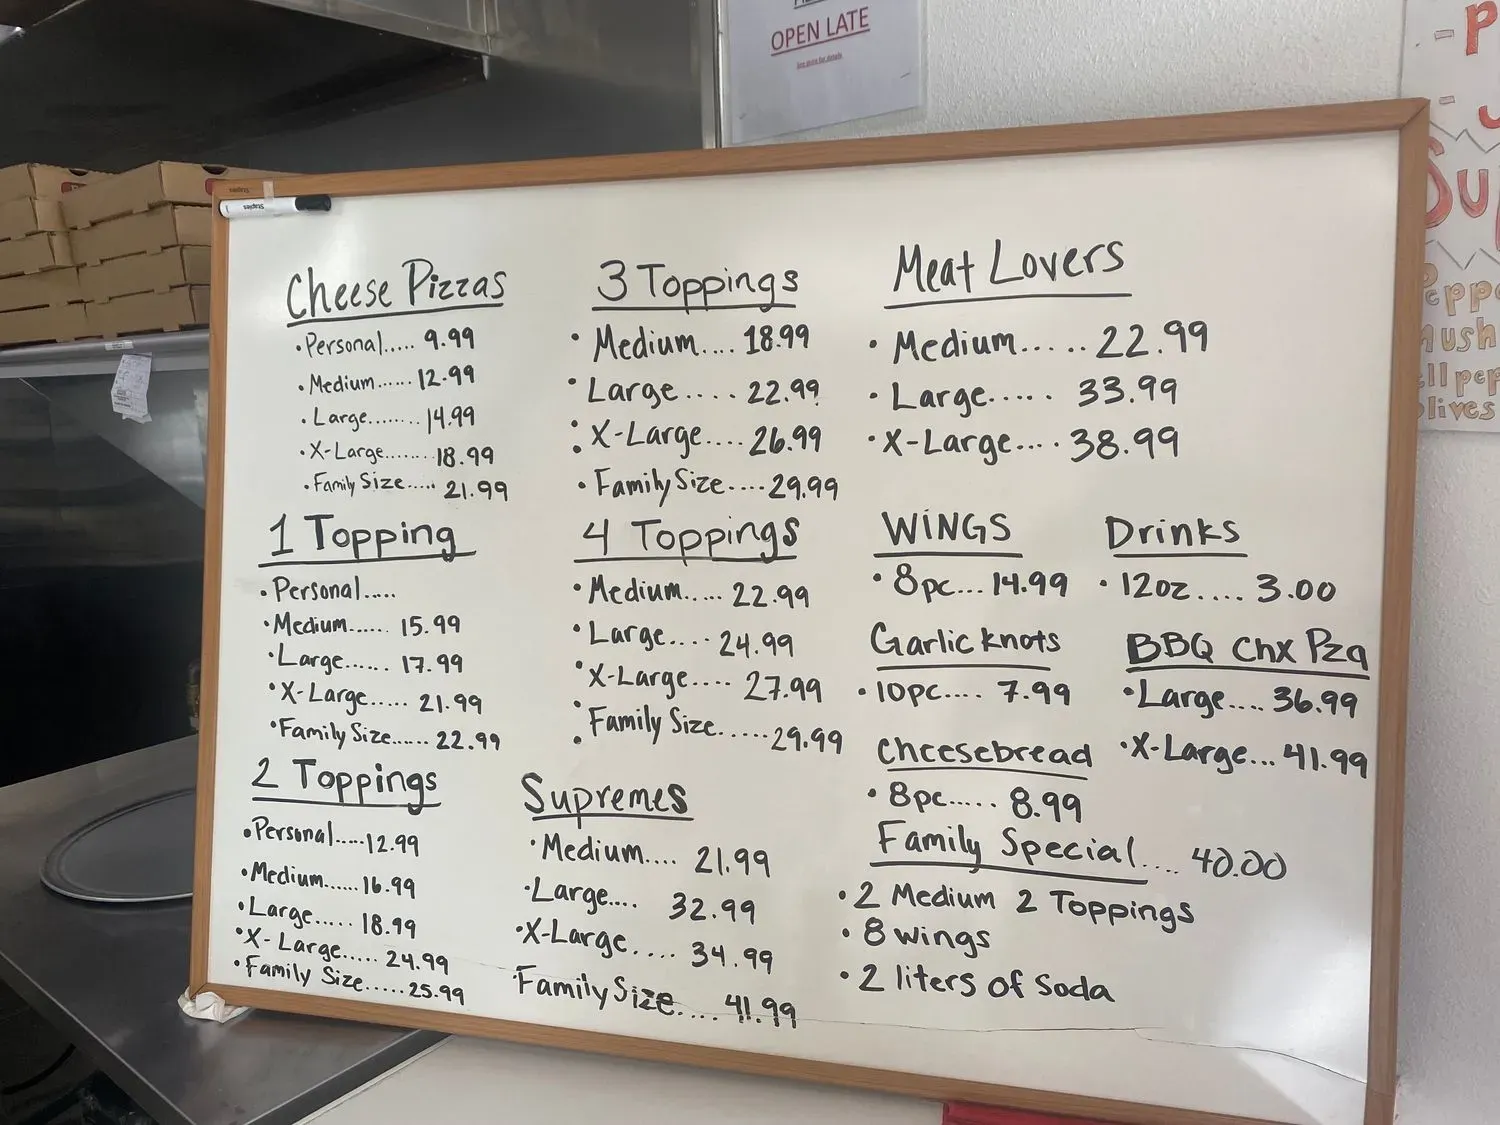 OPEN LATE
Cheese Pizzas
• Personal..... 9.99
• Medium...... 12.99
• Large........ 14.99
• X-Large....... 18.99
• Family Size..... 21.99
1 Topping
• Personal.....
• Medium...... 15.99
• Large...... 17.99
• X-Large..... 21.99
• Family Size...... 22.99
2 Toppings
• Personal.....12.99
• Medium......16.99
• Large..... 18.99
• X-Large..... 24.99
• Family Size.....25.99
3 Toppings
• Medium.... 18.99
• Large.... 22.99
• X-Large.... 26.99
• Family Size....29.99
4 Toppings
• Medium..... 22.99
• Large.... 24.99
• X-Large.... 27.99
• Family Size.....29.99
Supremes
• Medium.... 21.99
• Large.... 32.99
• X-Large.... 34.99
• Family Size.... 41.99
Meat Lovers
• Medium..... 22.99
• Large..... 33.99
• X-Large.... 38.99
WiNGS
• 8pc... 14.99
Drinks
• 12oz .... 3.00
Garlic knots
• 10pc.... 7.99
BBQ Chx Pza
• Large.... 36.99
• X-Large... 41.99
Cheesebread
• 8pc..... 8.99
Family Special.... 40.00
• 2 Medium 2 Toppings
• 8 wings
• 2 liters of Soda
Staples
Staples